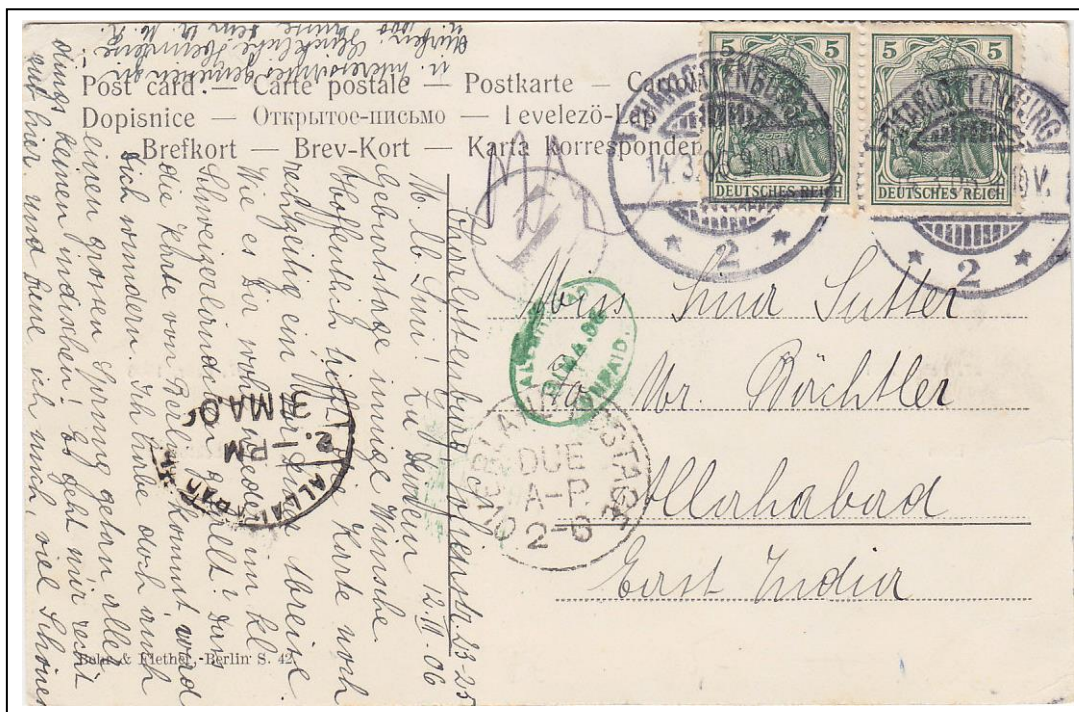 Post card. — Carte postale — Postkarte —
Dopisnice — Открытое-письмо — Levelezö-Lap
Brefkort — Brev-Kort — Karta korresponden
5
5
DEUTSCHES REICH
DEUTSCHES REICH
CHARLOTTENBURG
14.3.06 9-10V.
* 2 *
CHARLOTTENBURG
10V.
* 2 *
Miss Lina Sutter
to Mr. Bächtler
Allahabad
East India
UNPAID.
POSTAGE
DUE
A-P.
2-0
ALLAHABAD
2.-PM
31MA.06
Charlottenburg
23-25
12.III.06
M. lb Lini! Zu deinem
Geburtstag innige Wünsche.
Hoffentlich trifft die Karte noch
rechtzeitig ein vor deiner Abreise
Wie es Dir wohl wieder im kl.
Schweizerländchen gefällt? Dass
die Karte von Berlin kommt, ward
Dich wundern. Ich habe doch auch
einen grossen Sprung getan alle
dings keinen indischen! Es geht mir recht
gut hier, und freue ich mich, viel Schönes
Behr & Flether, Berlin S. 42